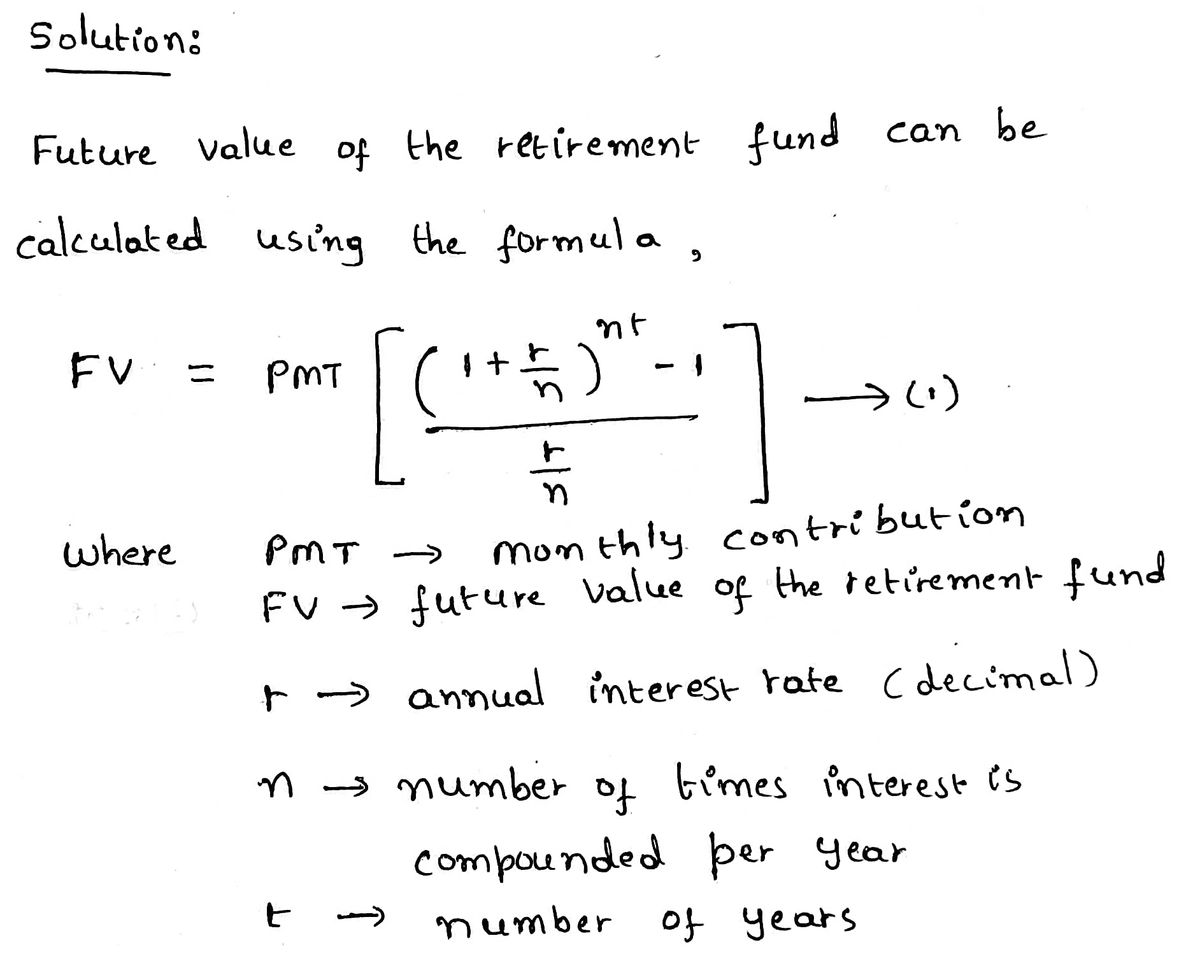 Solution:
Future value of the retirement fund can be
calculated using the formula,
FV = PMT [ ( (1 + r/n)^nt - 1 ) / (r/n) ] → (1)
where PMT → monthly contribution
FV → future value of the retirement fund
r → annual interest rate (decimal)
n → number of times interest is
compounded per year
t → number of years